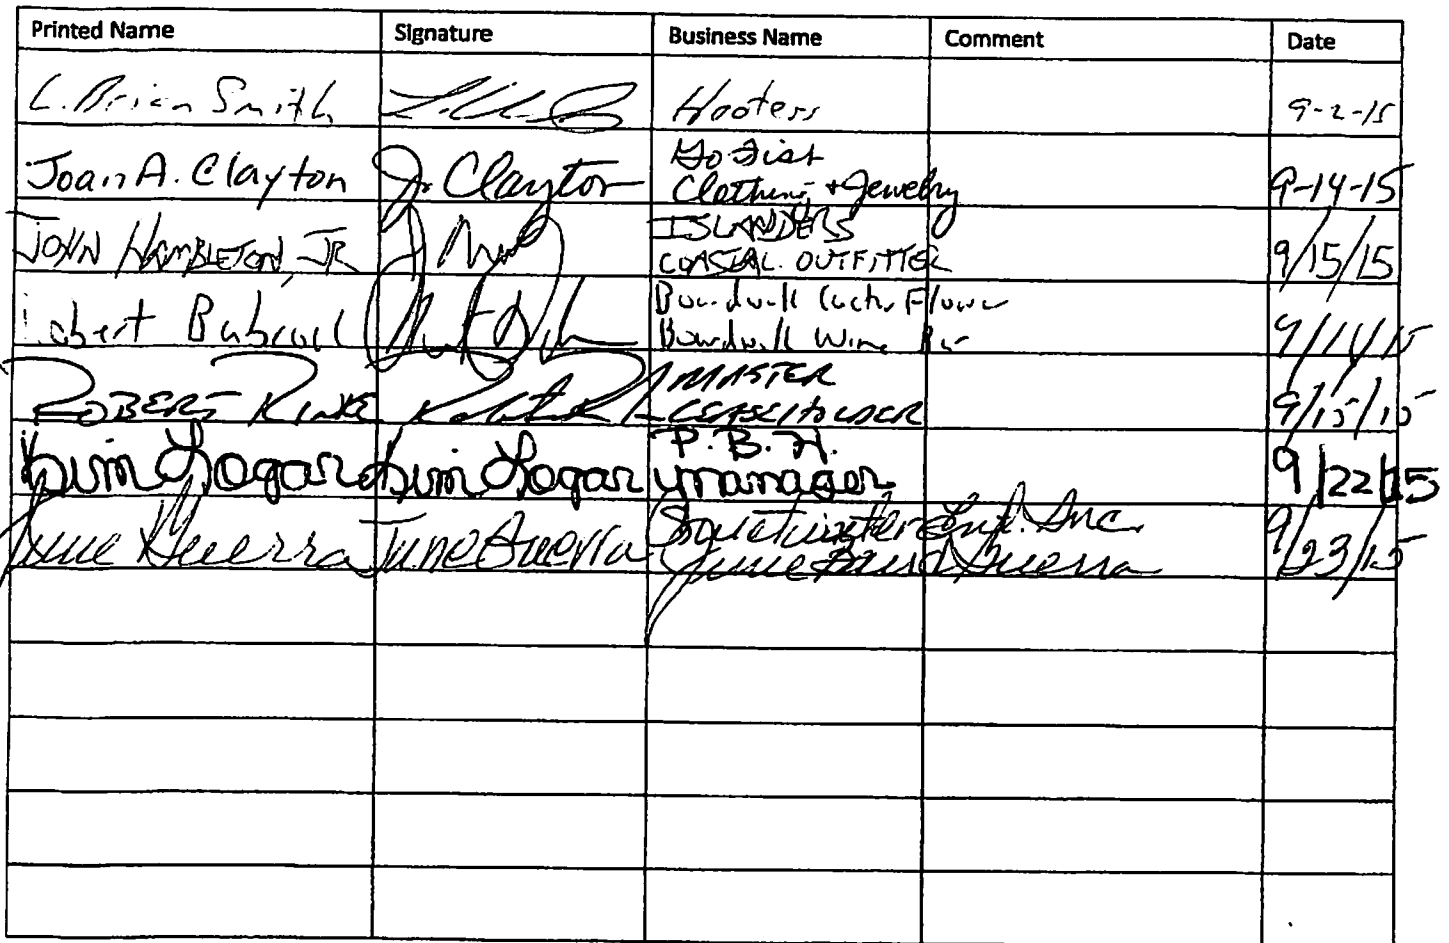 Printed Name Signature Business Name Comment Date
L. Brian Smith Hooters 9-2-15
Joan A. Clayton J. Clayton Go Fish Clothing + Jewelry 9-14-15
JOHN HAMBLETON, JR ISLANDERS COASTAL OUTFITTER 9/15/15
Boardwalk Wine Bar
ROBERT RINKE MASTER LEASEHOLDER 9/15/15
Kim Logan Kim Logan P.B.H. manager 9/22/15
June Guerra June Guerra Inc. June Guerra 9/23/15